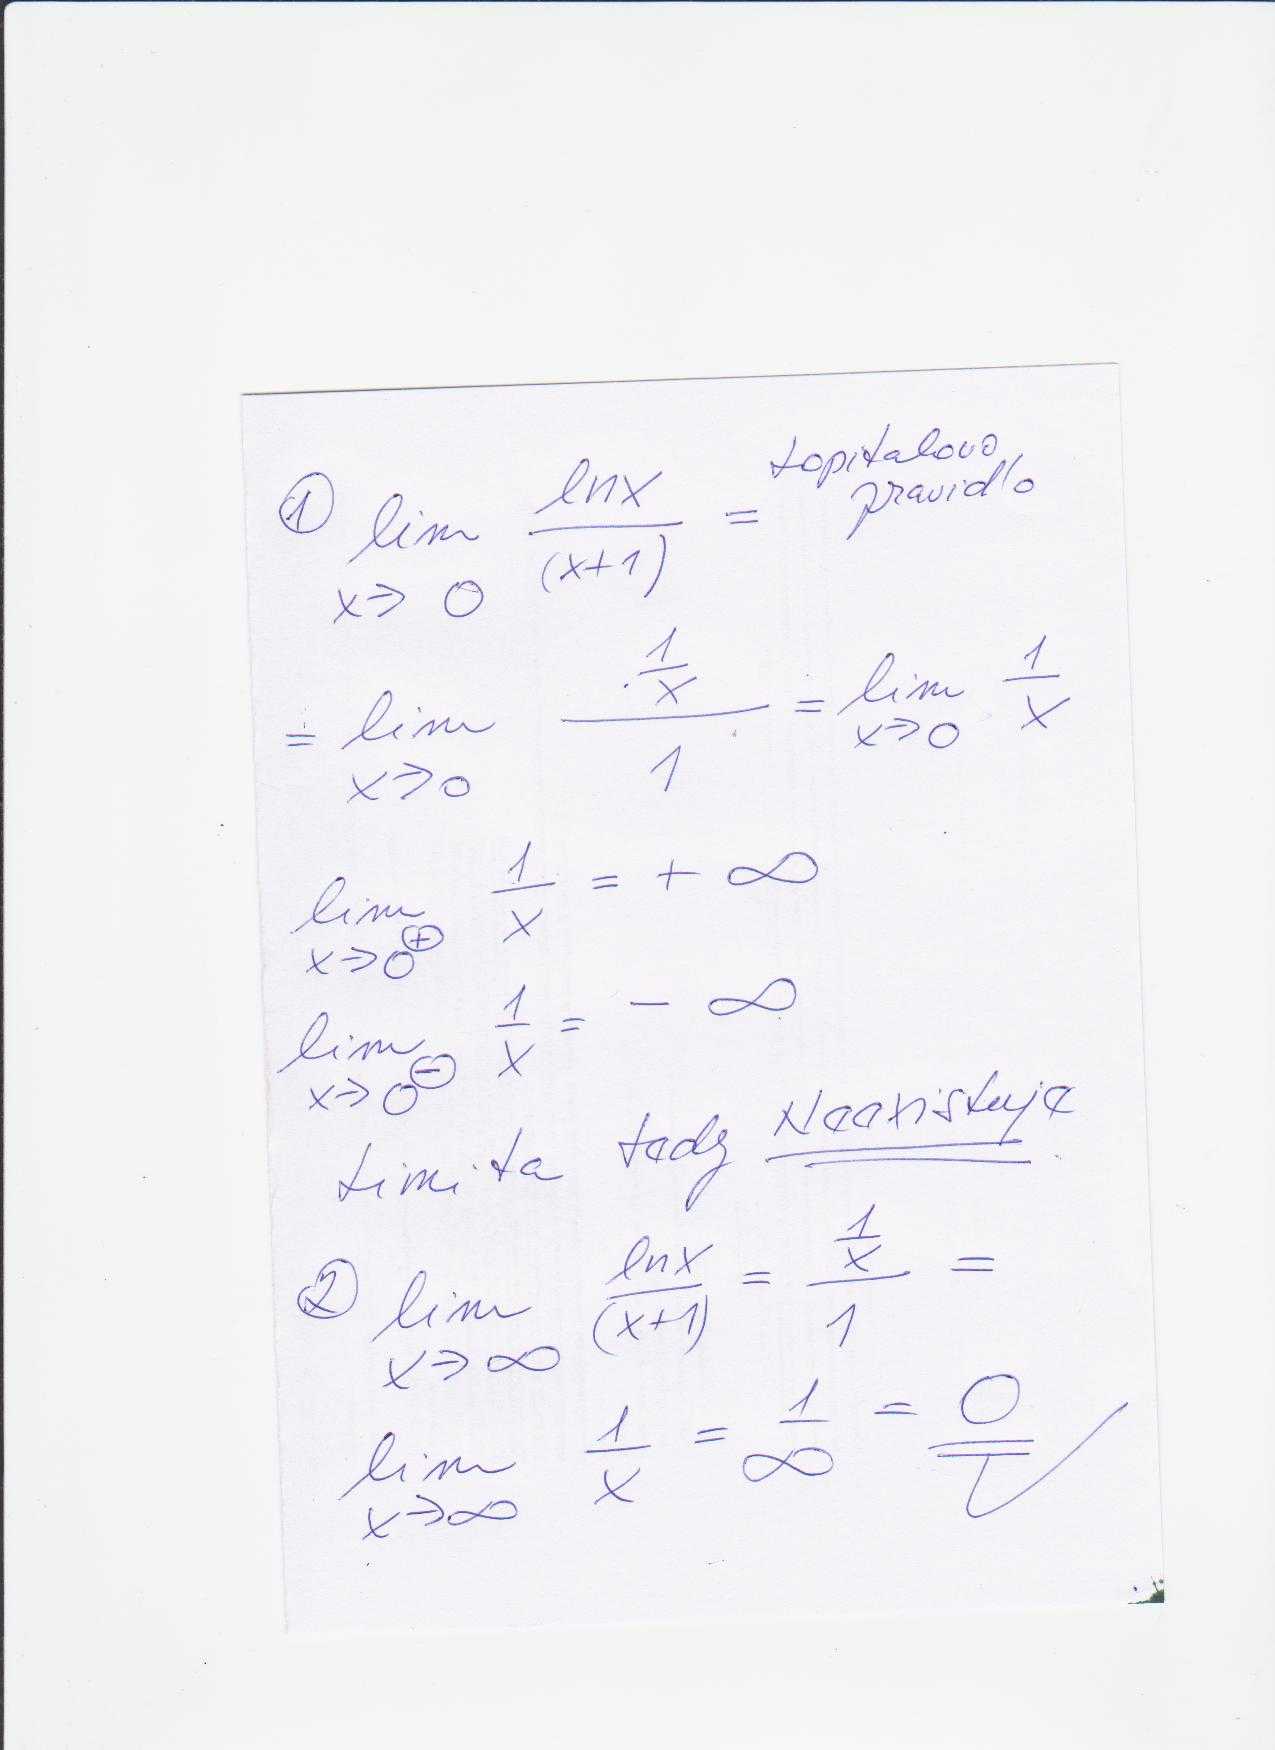 ① lim x→0 lnx/(x+1) = Lopitalovo
pravidlo
= lim x→0 (1/x)/1 = lim x→0 1/x
lim x→0⁺ 1/x = + ∞
lim x→0⁻ 1/x = - ∞
Limita tedy Neexistuje
② lim x→∞ lnx/(x+1) = (1/x)/1 =
lim x→∞ 1/x = 1/∞ = 0